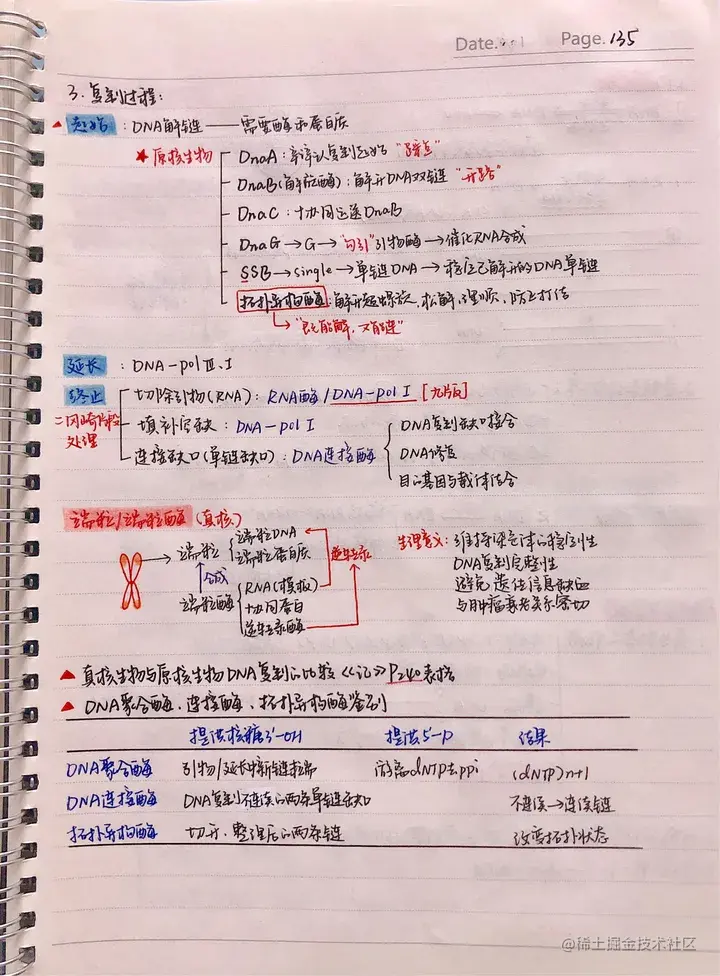 Date. Page. 135
3. 复制过程:
▲ 起始: DNA解链 —— 需要酶和蛋白质
★ 原核生物
DnaA: 辨认复制起始 "踩点"
DnaB(解旋酶): 解开DNA双链 "开路"
DnaC: 协同运送DnaB
DnaG → G → "勾引" 引物酶 → 催化RNA合成
SSB → single → 单链DNA → 稳定已解开的DNA单链
拓扑异构酶: 解开超螺旋, 松解, 理顺, 防止打结
"既能解, 又能连"
延长: DNA-pol Ⅲ、Ⅰ
终止
=冈崎片段处理
切除引物(RNA): RNA酶/DNA-pol Ⅰ [九版]
填补空缺: DNA-pol Ⅰ
连接缺口(单链缺口): DNA连接酶
DNA复制缺口接合
DNA修复
目的基因与载体结合
端粒/端粒酶 (真核)
端粒
端粒DNA
端粒蛋白质
合成
逆转录
端粒酶
RNA(模板)
协同蛋白
逆转录酶
生理意义: 维持染色体的稳定性
DNA复制完整性
避免遗传信息缺血
与肿瘤衰老关系密切
▲ 真核生物与原核生物DNA复制的比较《记》P240表格
▲ DNA聚合酶、连接酶、拓扑异构酶鉴别
提供核糖3'-OH 提供5'-P 结果
DNA聚合酶 引物/延长中新链末端 游离dNTP去ppi (dNTP)n+1
DNA连接酶 DNA复制不连续的两条单链缺口 不连续→连续链
拓扑异构酶 切开、整理后的两条链 改变拓扑状态
@稀土掘金技术社区